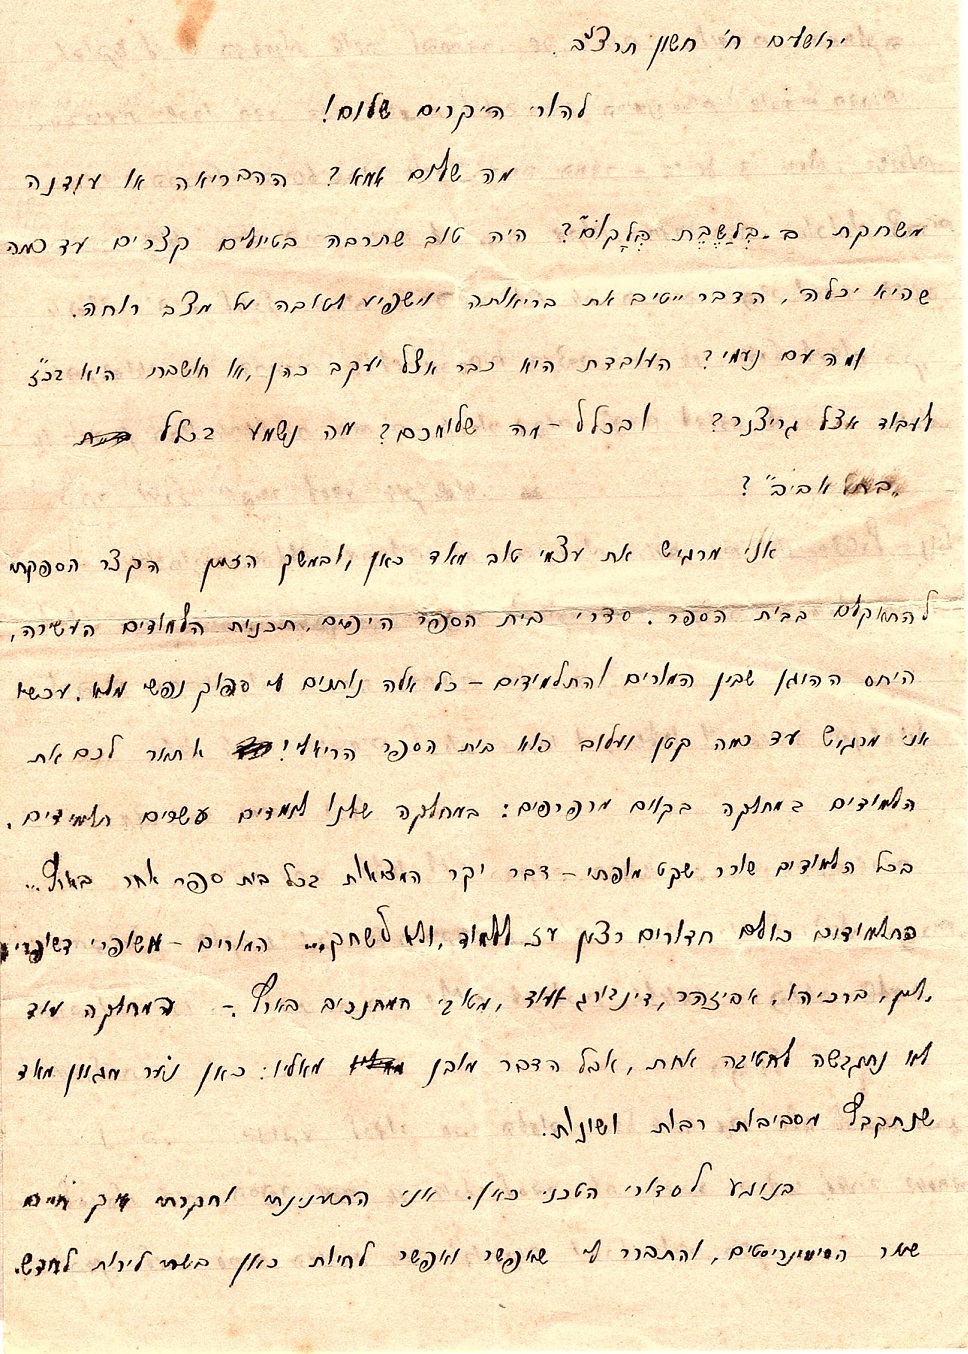 ירושלים ח' חשון תרצ"ב.
להורי היקרים שלום!
מה שלום אמא? ההבריאה או עודנה
משחקת ב"בְּלַשֶבֶת הֶלָקוֹם"? היה טוב שתרבה בטיולים קצרים עד כמה
שהיא יכלה, הדבר ייטיב את בריאותה וישפיע לטובה על מצב רוחה.
ומה עם נעמי? העובדת היא כבר אצל יעקב כהן, או חושבת היא בכ"ז
לעבוד אצל גריצנר? ובכלל – מה שלומכם? מה נשמע בכלל
"בתל אביב"?
אני מרגיש את עצמי טוב מאוד כאן, ובמשך הזמן הקצר הספקתי
להתאקלם בבית הספר. סדרי בית הספר היפים, תכנית הלמודים העשירה,
היחס ההוגן שבין המורים והתלמידים – כל אלה נותנים לי ספוק נפשי מלא. עכשו
אני מרגיש עד כמה קטן ועלוב הוא בית הספר הריאלי! אתאר לכם את
הלמודים במחלקה בקוים מרפרפים: במחלקה שלנו לומדים עשרים תלמידים.
בכל הלמודים שורר שקט מופתי – דבר יקר המציאות בכל בית ספר אחר בארץ...
התלמידים כולם חדורים רצון עז ללמוד, ולא לשחק... המורים – משופרי דשופרי
ברכיהו, אביזהר, דינבורג ועוד, מטובי המחנכים בארץ. – המחלקה עוד
לא נתגבשה לחטיבה אחת, אבל הדבר מובן מאליו: כאן נוער מגוון מאד
שנתקבץ מסביבות רבות ושונות.
בנוגע לסדורי הטכני כאן. אני התענינתי וחקרתי איך חיים
שאר הסימינריסטים, והתברר לי שאפשר ואפשר לחיות כאן בשתי לירות לחדש.